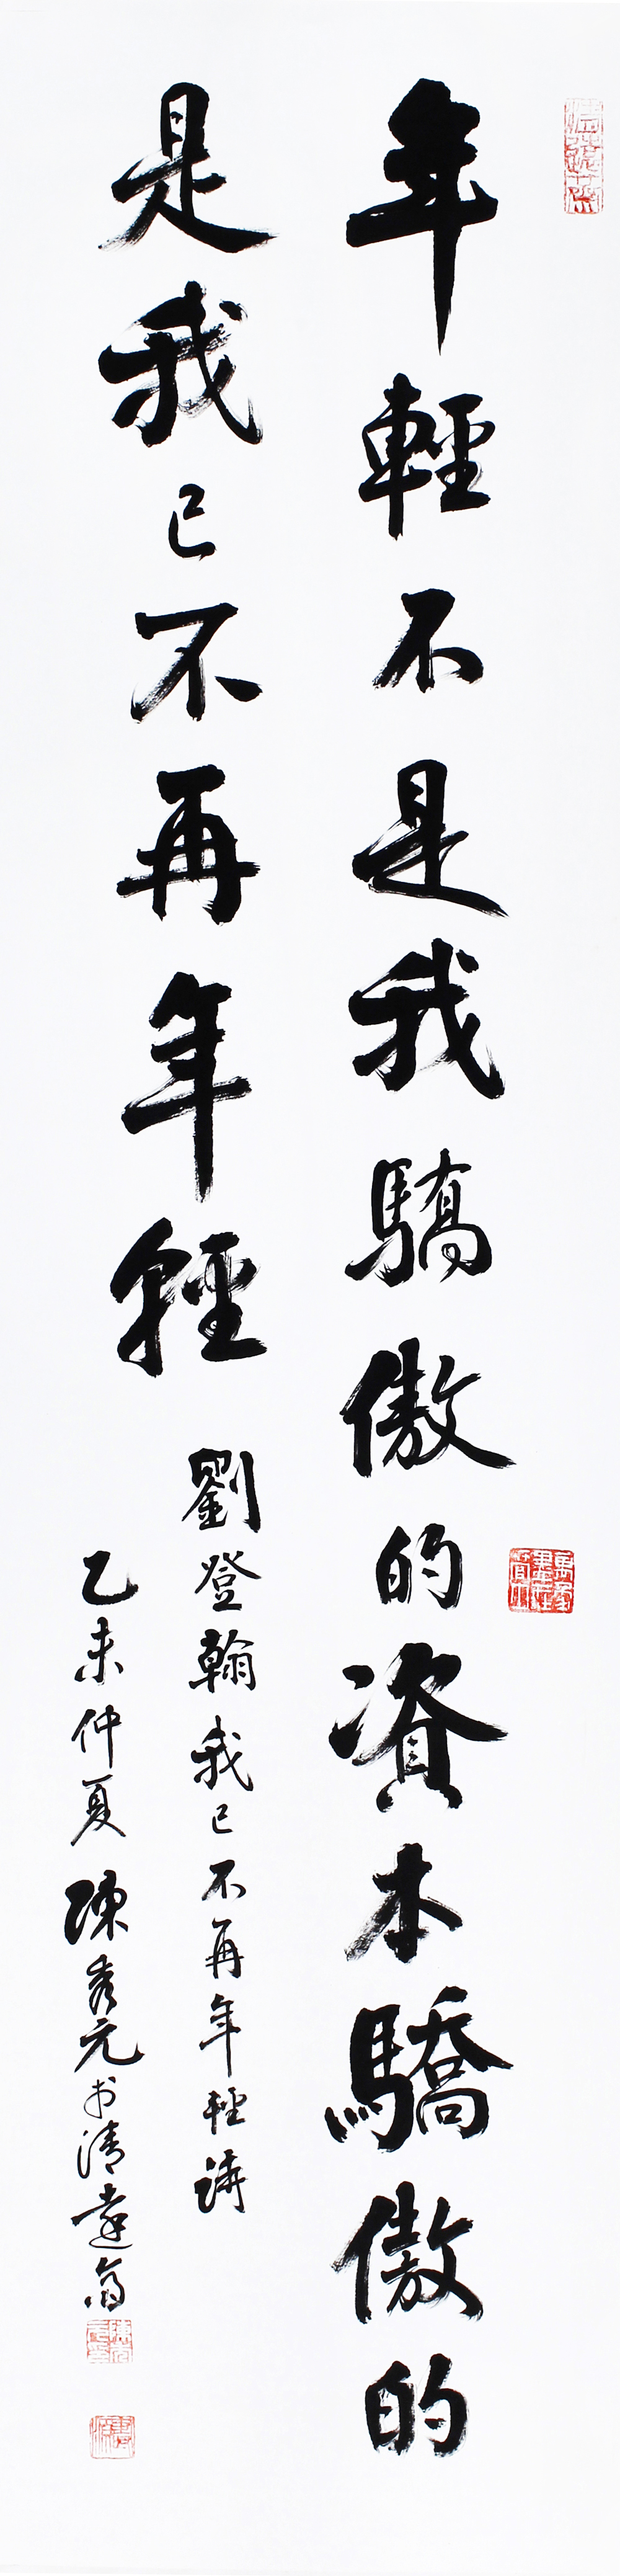 年輕不是我驕傲的資本驕傲的
是我已不再年輕
劉登翰我已不再年輕詩
乙未仲夏陳秀元书清遠齋